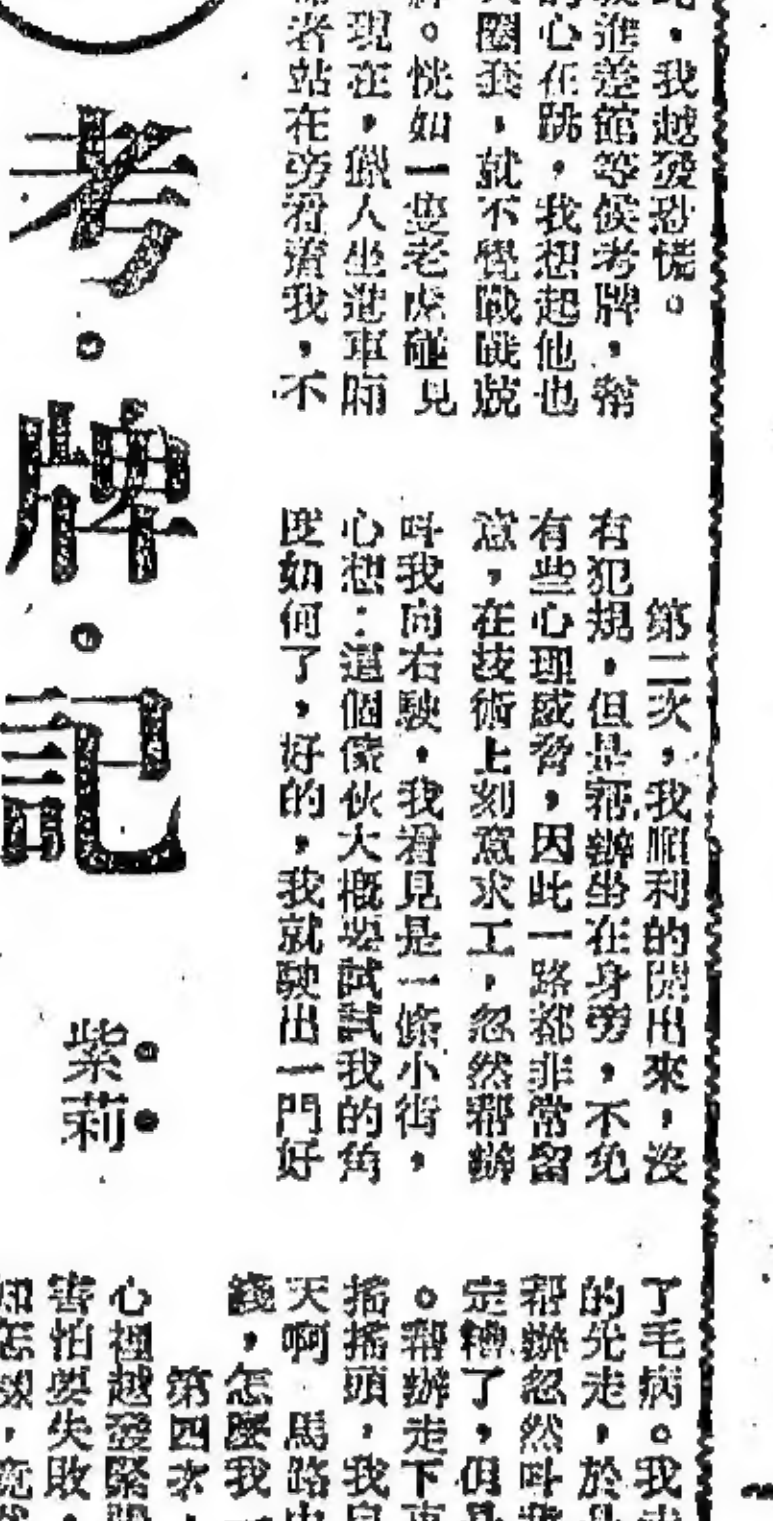 ，我越發恐慌。
進差館等候考牌，幫
心在跳，我想起他也
圈套，就不覺戰戰兢
。恍如一隻老虎碰見
現在，獵人坐進車廂
者站在旁看着我，不
考·牌·記
紫莉
第二次，我順利的開出來，沒
有犯規，但是帮辦坐在身旁，不免
有些心理威脅，因此一路都非常留
意，在技術上刻意求工，忽然帮辦
叫我向右駛，我看見是一條小街，
心想：這個傢伙大概要試試我的角
度如何了，好的，我就駛出一門好
了毛病。我
的先走，於是
帮辦忽然叫我
定轉了，但是
。帮辦走下車
搖搖頭，我
天啊 馬路
綫，怎麼我
第四次
心裡越發緊
害怕要失敗，